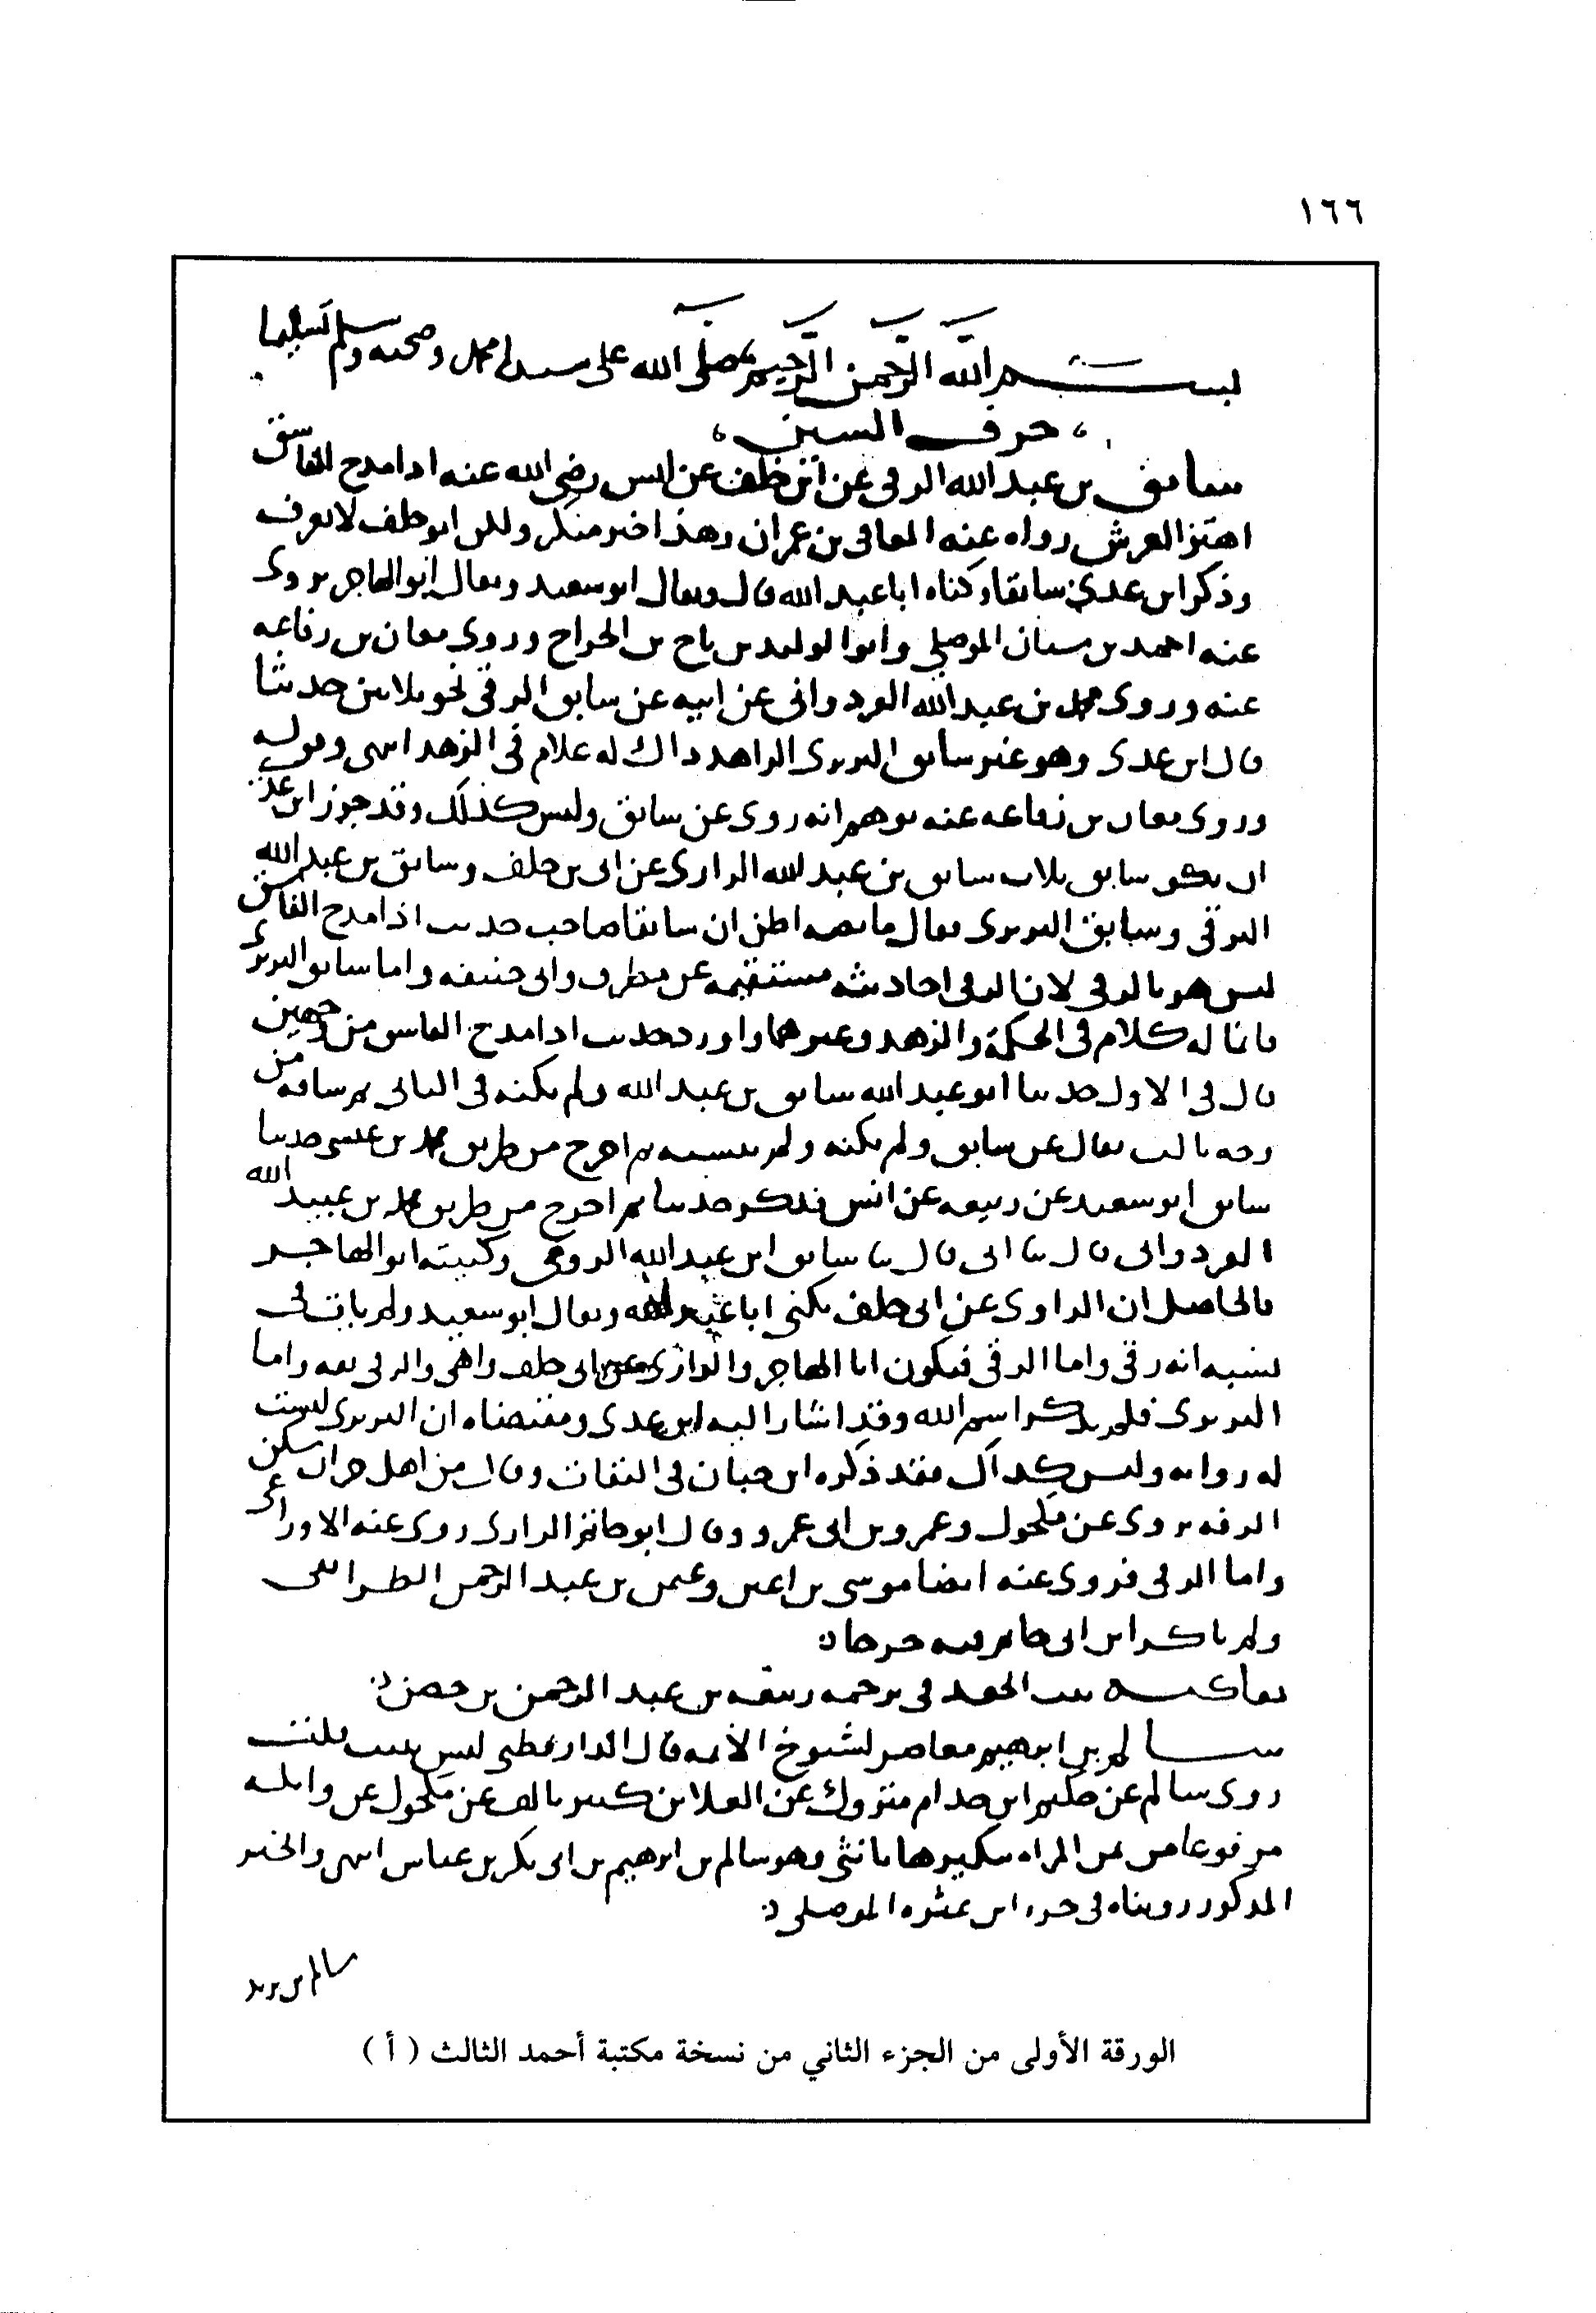 ١٦٦
بسم الله الرحمن الرحيم صلى الله على سيدنا محمد وصحبه وسلم تسليما
حرف السين
سابق بن عبد الله الرقي عن أبي خلف عن انس رضي الله عنه اذا مدح الفاسق
اهتز العرش رواه عنه المعافى بن عمران وهذا خبر منكر ولكن ابو خلف لا يعرف
وذكر ابن عدي سابقا وكناه ابا عبد الله قال ويقال ابو سعيد ويقال ابو المهاجر يروى
عنه احمد بن سنان الموصلي وابو الوليد بن الجراح وروى معان بن رفاعه
عنه وروى محمد بن عبد الله القردواني عن ابيه عن سابق الرقي نحو ثلاثين حديثا
قال ابن عدى وهو غير سابق البربرى الزاهد ذاك له كلام فى الزهد انتهى وقوله
وروى معان بن رفاعه عنه يوهم انه روى عن سابق وليس كذلك وقد جوز ابن عدي
ان يكون سابق ثلاث سابق بن عبد الله الراوى عن ابى خلف وسابق بن عبد الله
الرقي وسابق البربرى فقال ما نصه اظن ان سابقا صاحب حديث اذا مدح الفاسق
ليس هو بالرقي لان الرقي احاديثه مستقيمه عن مطرف وابى حنيفه واما سابق البربرى
فانما له كلام فى الحكمة والزهد وغيرهما واورد حديث اذا مدح الفاسق من وجهين
قال فى الاول حدثنا ابو عبد الله سابق بن عبد الله ولم يكنه فى الثانى ثم ساقه من
وجه ثالث فقال عن سابق ولم يكنه ولم ينسبه ثم اخرج من طريق محمد بن عيسى حدثنا
سابق ابو سعيد عن ربيعه عن انس فذكر حديثا ثم اخرج من طريق محمد بن عبيد الله
القردوانى قال ثنا ابى قال ثنا سابق ابن عبد الله الرقى وكنيته ابو المهاجر
فالحاصل ان الراوى عن ابى خلف يكنى ابا عبد الله ويقال ابو سعيد ولم يات فى
نسبه انه رقي واما الرقي فيكون ابا المهاجر والراوى عن ابى خلف واهى والرقى ثقه واما
البربرى فلم يذكر اسم الله وقد اشار اليه ابن عدى ومقتضاه ان البربرى ليست
له روايه وليس كذلك فقد ذكره ابن حبان فى الثقات وقال من اهل حران سكن
الرقه يروى عن مكحول وعمرو بن ابى عمرو وقال ابو حاتم الرازى روى عنه الاوزاعى
واما الرقى فروى عنه ايضا موسى بن اعين وعثمن بن عبد الرحمن الطرائفى
ولم يذكر ابن ابى حاتم فيه جرحا
بيت الجعد فى ترجمه رسقه بن عبد الرحمن بن حصن
سالم بن ابرهيم معاصر لشيوخ الأئمه قال الدارقطنى ليس بثقه
روى سالم عن حكيم ابن خدام متروك عن العلا بن كثير تالف عن مكحول عن واثله
مرفوعا من يمن المراه تبكيرها بانثى وهو سالم بن ابرهيم بن ابى بكر بن عياش انتهى والخبر
المذكور رويناه فى جزء ابن عثره الموصلى
سالم بن يزيد
الورقة الأولى من الجزء الثاني من نسخة مكتبة أحمد الثالث ( أ )